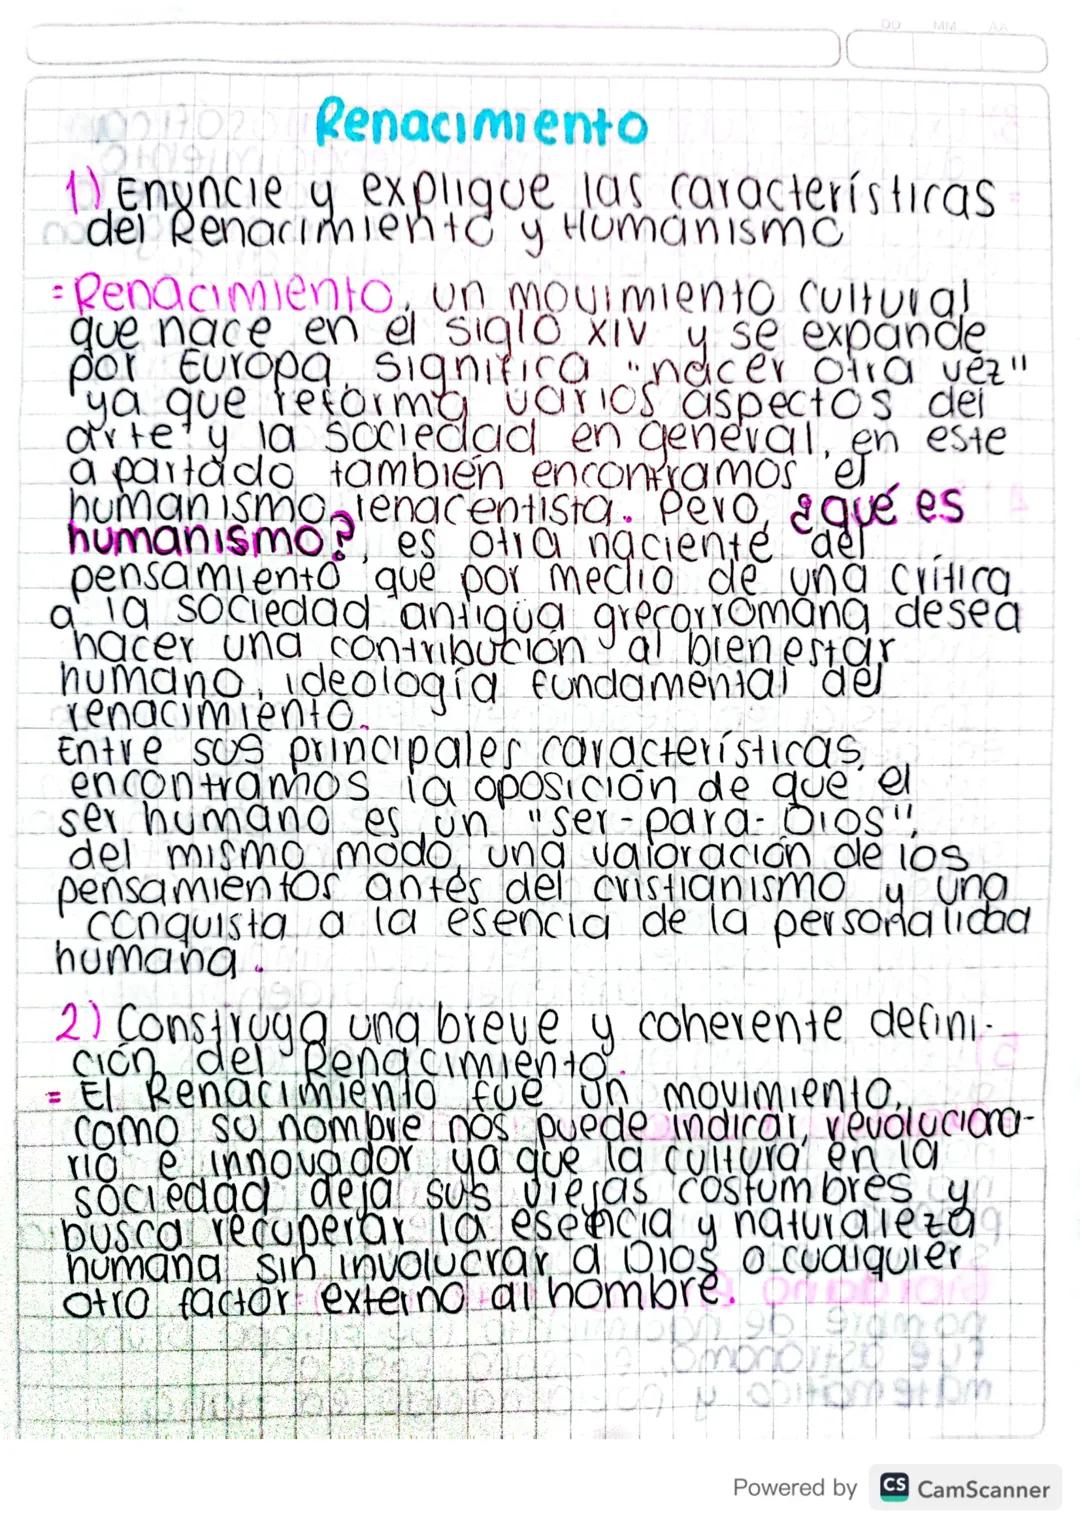 DD MM AA
Renacimiento
1) Enuncie y explique las características
del Renacimiento y Humanismo
= Renacimiento, un movimiento cultural
que nace en el siglo XIV y se expande
por Europa, significa "nacer otra vez"
ya que reforma varios aspectos del
arte y la sociedad en general, en este
apartado también encontramos el
humanismo renacentista. Pero, ¿qué es
humanismo?, es otra naciente del
pensamiento que por medio de una crítica
a la sociedad antigua grecorromana desea
hacer una contribución al bienestar
humano, ideología fundamental del
renacimiento.
Entre sus principales características,
encontramos la oposición de que el
ser humano es un "ser-para-Dios",
del mismo modo, una valoración de los
pensamientos antes del cristianismo y una
conquista a la esencia de la personalidad
humana.
2) Construya una breve y coherente defini-
ción del Renacimiento.
= El Renacimiento fue un movimiento,
como su nombre nos puede indicar, revoluciona-
rio e innovador ya que la cultura en la
sociedad deja sus viejas costumbres y
busca recuperar la esencia y naturaleza
humana sin involucrar a Dios o cualquier
otro factor externo al hombre.
Powered by CS CamScanner